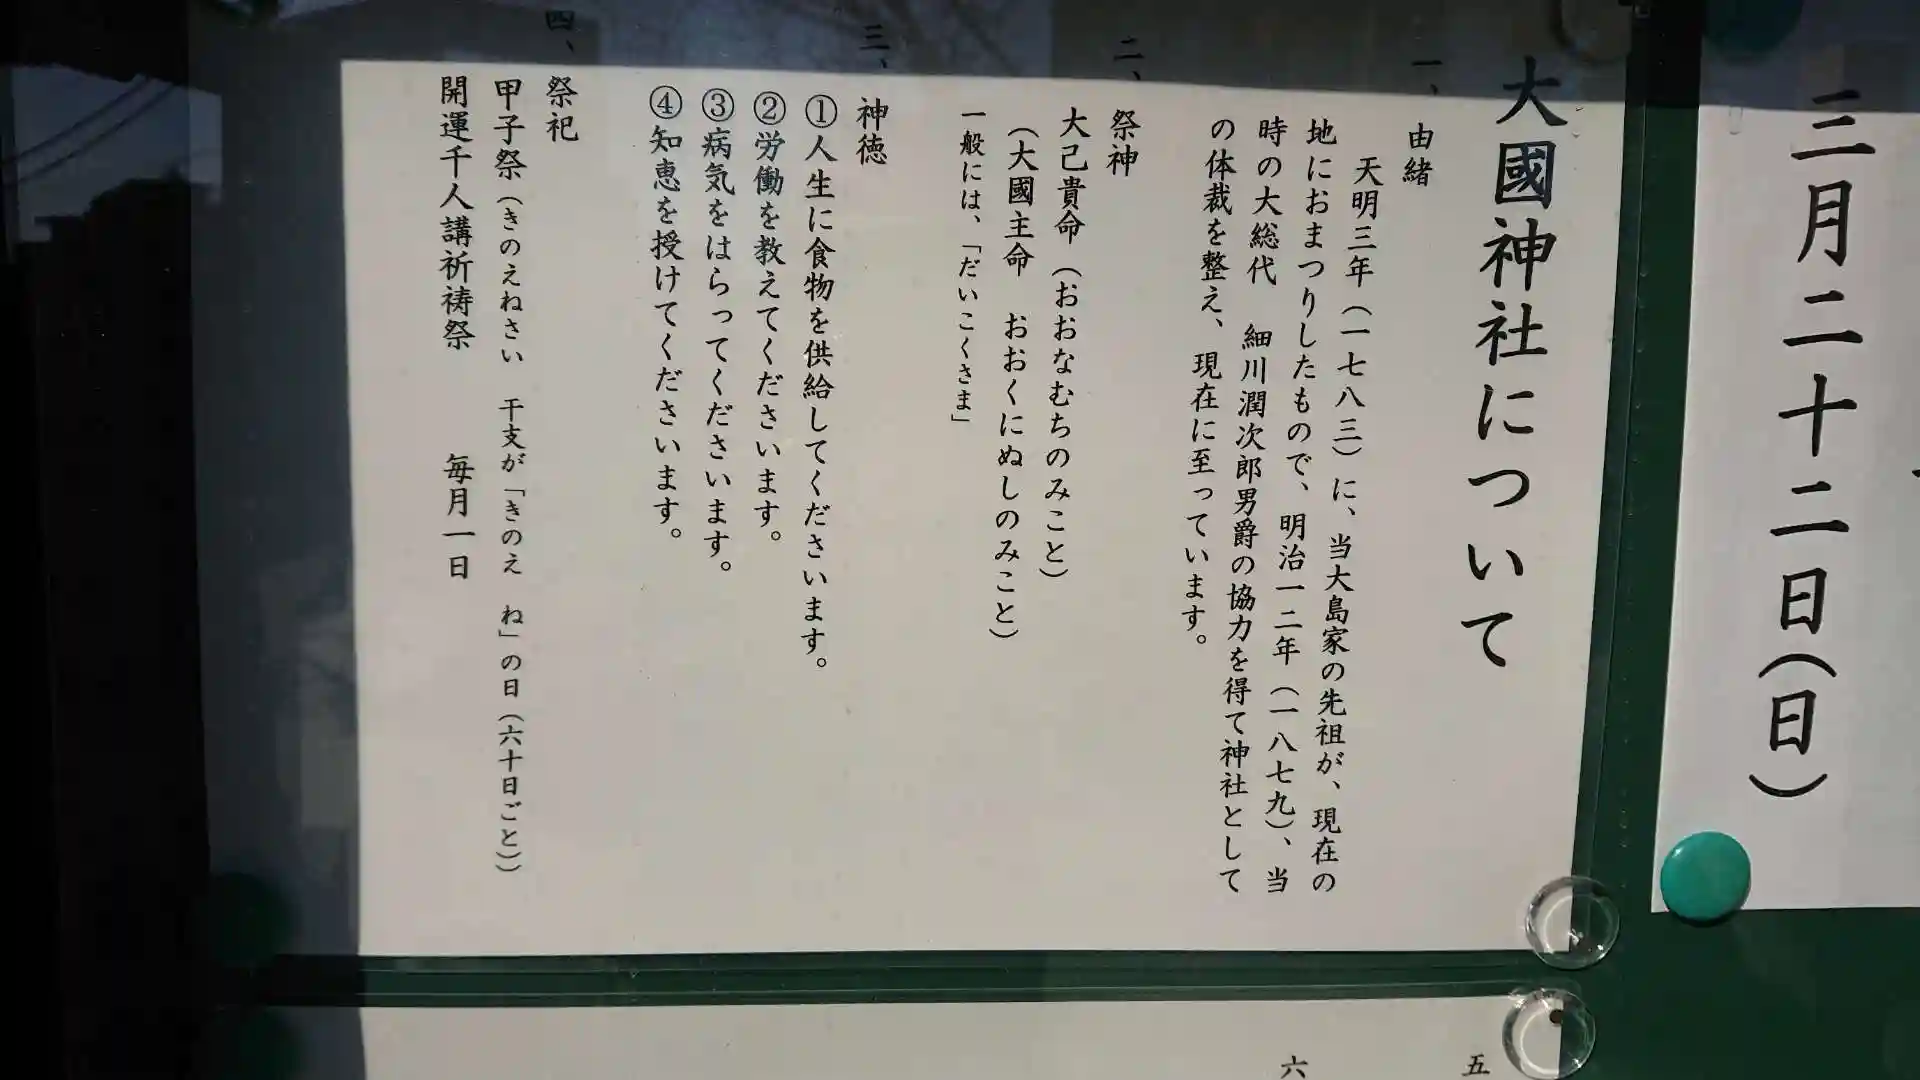 三月二十二日(日)
大國神社について
一、由緒
天明三年(一七八三)に、当大島家の先祖が、現在の
地におまつりしたもので、明治一二年(一八七九)、当
時の大総代 細川潤次郎男爵の協力を得て神社として
の体裁を整え、現在に至っています。
二、祭神
大己貴命(おおなむちのみこと)
(大國主命 おおくにぬしのみこと)
一般には、「だいこくさま」
三、神徳
①人生に食物を供給してくださいます。
②労働を教えてくださいます。
③病気をはらってくださいます。
④知恵を授けてくださいます。
四、祭祀
甲子祭(きのえねさい 干支が「きのえ ね」の日(六十日ごと))
開運千人講祈祷祭 毎月一日
五
六